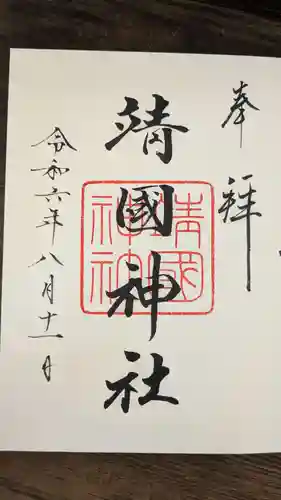 奉拝
靖國神社
靖國神社
令和六年八月十一日